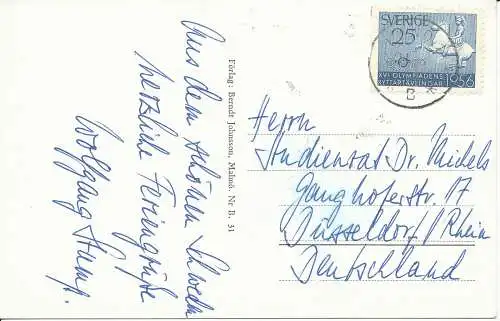 Aus dem schönen Schweden
herzliche Feriengrüße
Wolfgang
Förlag: Berndt Johnsson, Malmö. Nr B. 31
SVERIGE
25
XVI OLYMPIADENS
RYTTARTÄVLINGAR
1956
B
Herrn
Studienrat Dr. Michels
Ganghoferstr. 17
Düsseldorf/Rhein
Deutschland